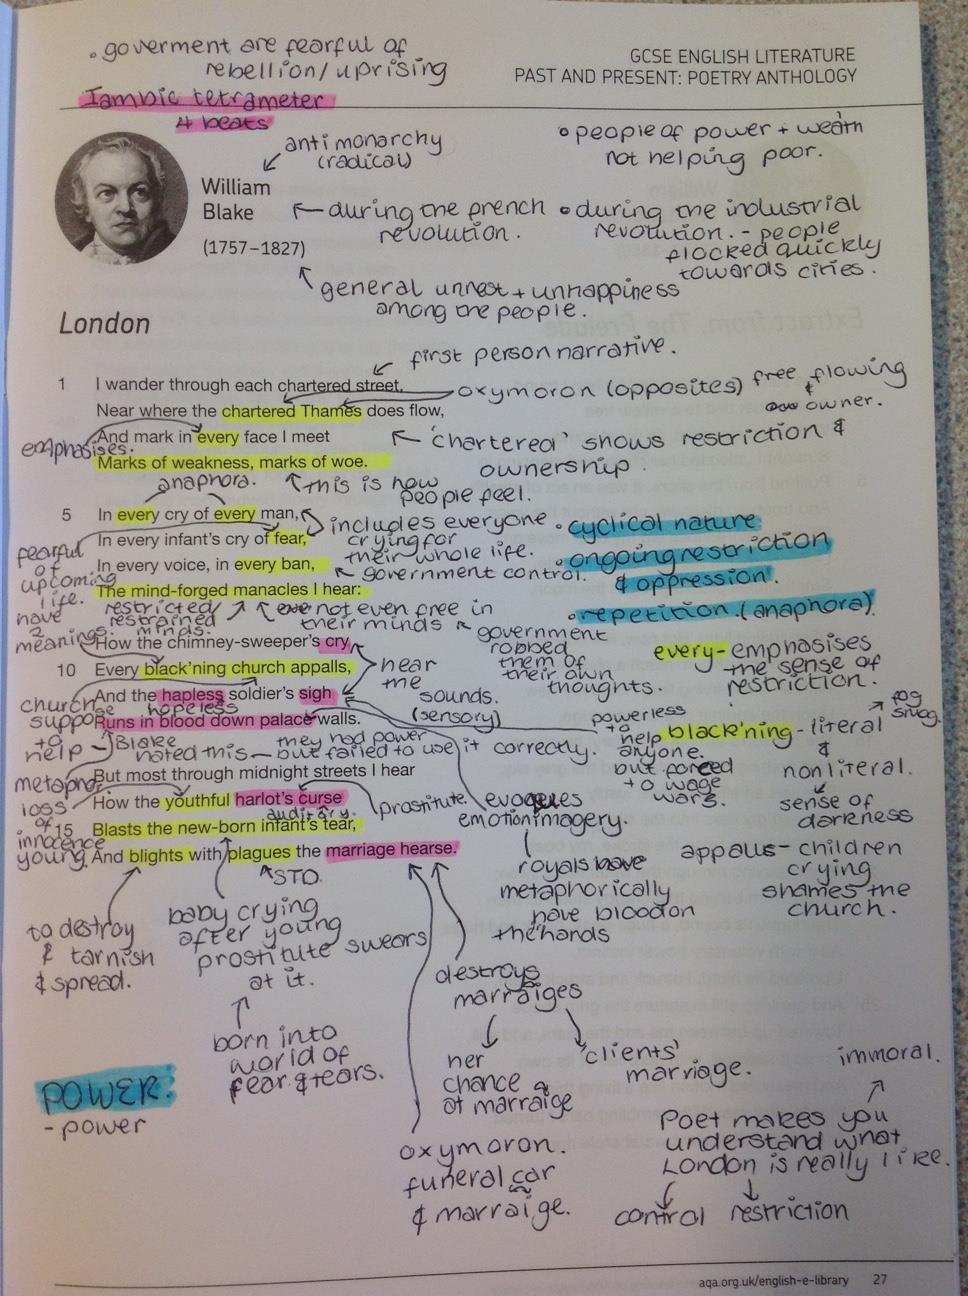 . goverment are fearful of
rebellion/uprising
GCSE ENGLISH LITERATURE
PAST AND PRESENT: POETRY ANTHOLOGY
Iambic tetrameter
4 beats
anti monarchy
(radical)
• people of power +
not helping poor.
William
Blake
(1757–1827)
←during the french
revolution.
• during the industrial
revolution. - people
flocked quickly
towards cities.
general unrest + unhappiness
among the people.
London
first person narrative.
1 I wander through each chartered street,
oxymoron (opposites) free flowing
&
owner.
Near where the chartered Thames does flow,
emphasises.
And mark in every face I meet
← 'chartered' shows restriction &
ownership.
Marks of weakness, marks of woe.
anaphora.
this is how
people feel.
5 In every cry of every man,
includes everyone
In every infant's cry of fear,
crying for
their whole life.
In every voice, in every ban,
government control.
The mind-forged manacles I hear:
. cyclical nature
. ongoing restriction
& oppression.
. repetition (anaphora).
fearful
of
upcoming
life.
have
2
meanings.
restricted/
restrained
minds.
not even free in
their minds
government
robbed
them of
their own
thoughts.
every- emphasises
the sense of
restriction.
How the chimney-sweeper's cry
10 Every black'ning church appalls,
And the hapless soldier's sigh
hopeless
Runs in blood down palace walls.
hear
the
sounds.
(sensory)
church
suppose
to
help
Blake
hated this — they had power
but failed to use it correctly.
powerless
to
help
anyone.
but forced
to wage
wars.
black'ning - literal
fog
smog.
&
nonliteral.
sense of
darkness
metaphor
But most through midnight streets I hear
How the youthful harlot's curse
auditory.
prostitute.
15 Blasts the new-born infant's tear,
And blights with plagues the marriage hearse.
loss
of
innocence
young.
STD.
evoques
emotion imagery.
royals have
metaphorically
have blood on
the hands
appalls - children
crying
shames the
church.
to destroy
& tarnish
& spread.
baby crying
after young
prostitute swears
at it.
born into
world of
fear & tears.
destroys
marraiges
her
chance
at marraige
'clients'
marriage.
POWER:
- power
oxymoron.
funeral car
& marraige.
immoral.
Poet makes you
understand what
London is really like.
control restriction
aqa.org.uk/english-e-library 27